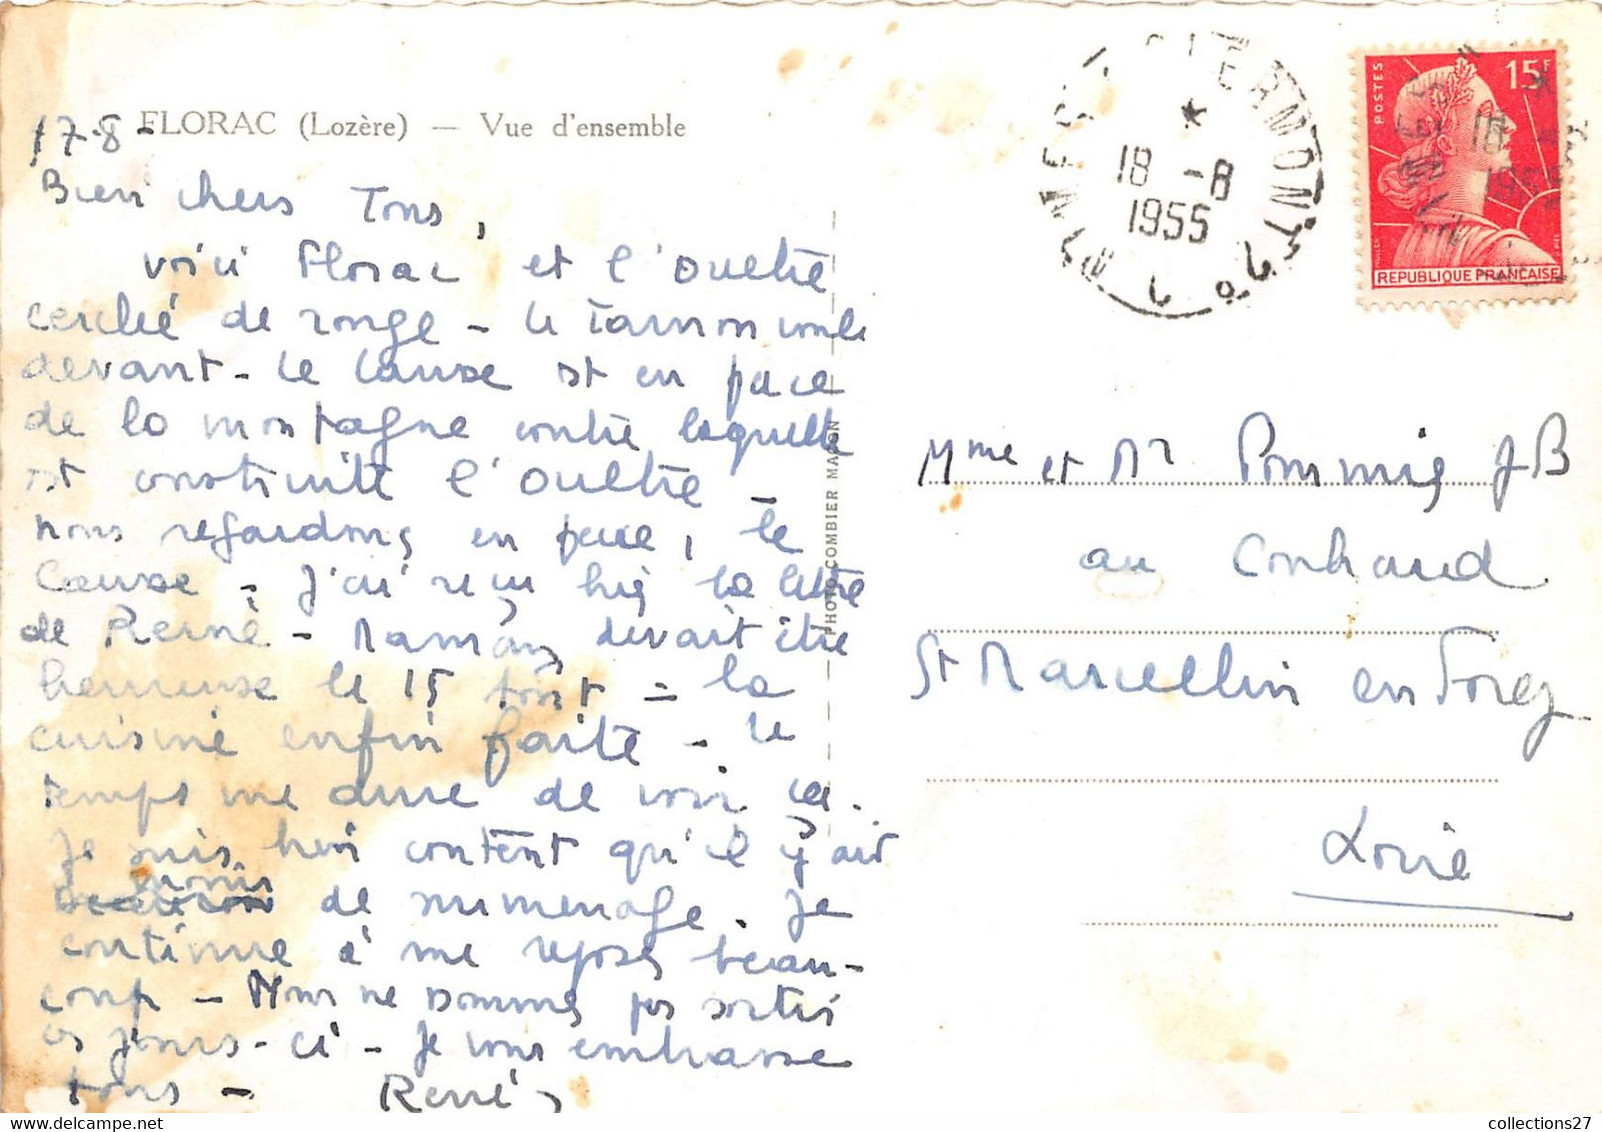 FLORAC (Lozère) — Vue d'ensemble
17-8-
Bien chers Tous,
voici Florac et l'Oultre
cerclé de rouge - le Tarnon coule
devant - Le Causse est en face
de la montagne contre laquelle
est construite l'Oultre -
nous regardons en face, le
Causse - J'ai reçu hier la lettre
de René - Maman devait être
heureuse le 15 Août - la
cuisine enfin faite - le
temps me dure de voir ça.
Je suis bien content qu'il y ait
moins
de remue menage. Je
continue à me reposer beau-
coup - Nous ne sommes pas sortis
ces jours-ci - Je vous embrasse
tous - René
PHOTO COMBIER MACON
CLERMONT
18 -8
1955
POSTES
15F
18
1955
REPUBLIQUE FRANÇAISE
Mme et Mr Pommier JB
au Conhaud
St Marcellin en Forez
Loire
collections27